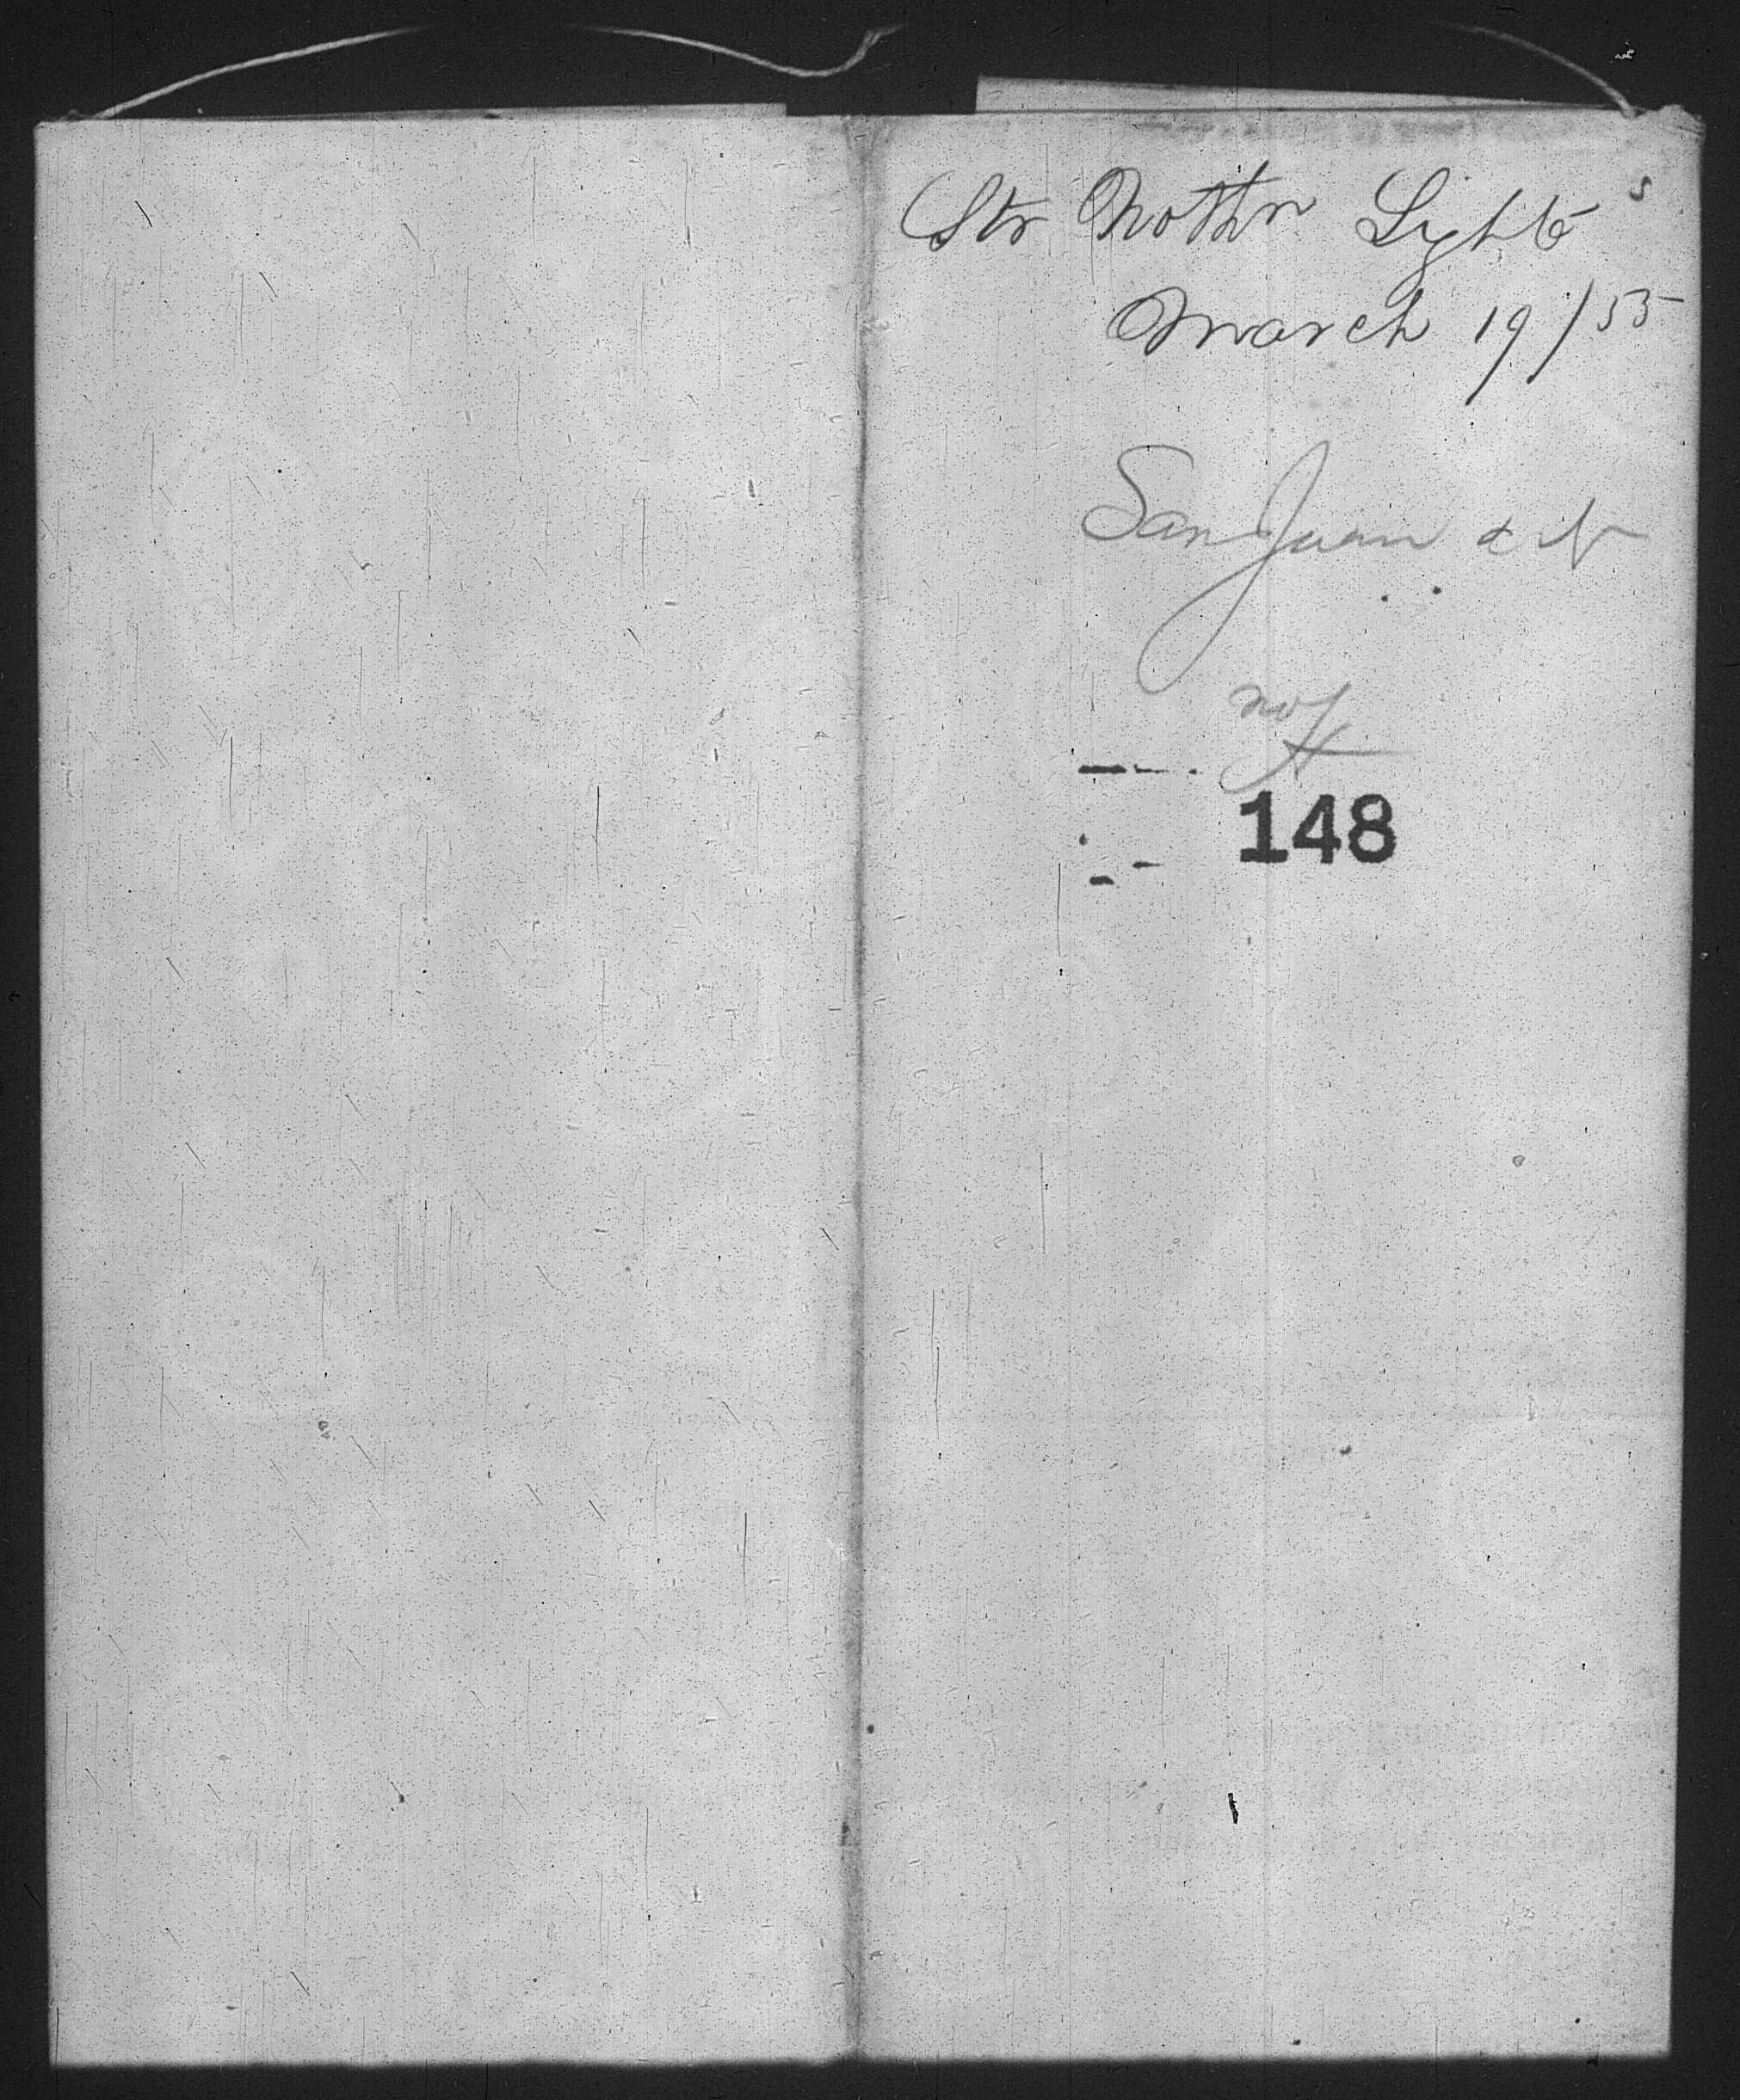 Str Nothn Light s
March 19/55
San Juan d N
148